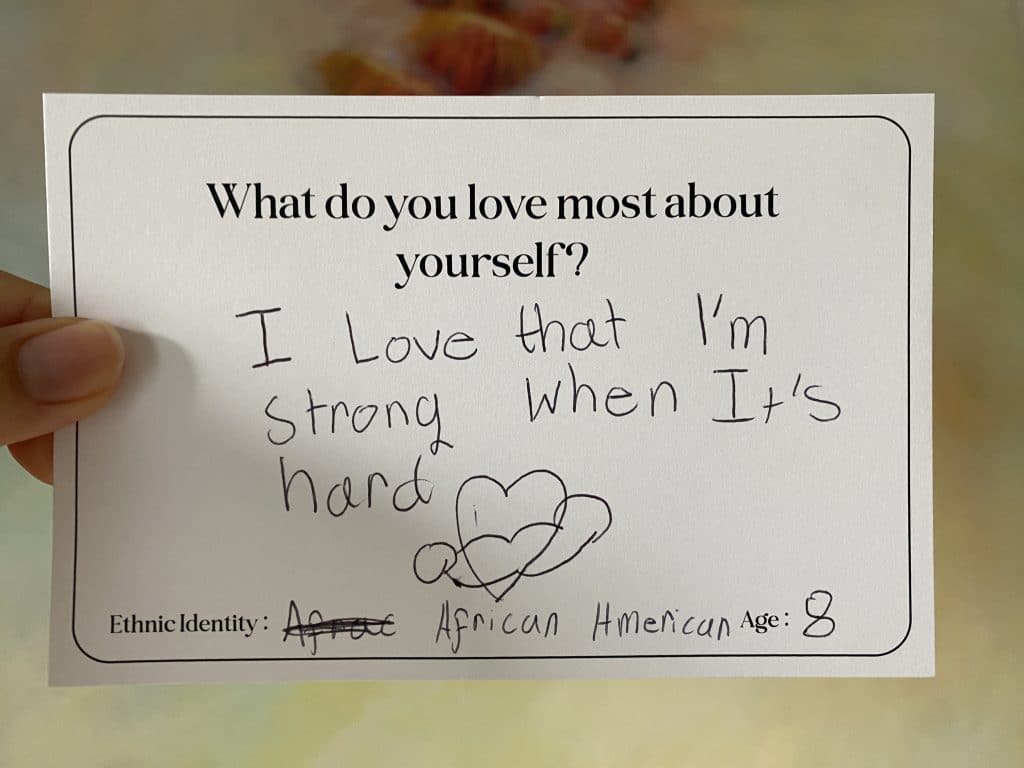 What do you love most about
yourself?
I Love that I'm
strong when It's
hard
Ethnic Identity: Afrac African American Age: 8